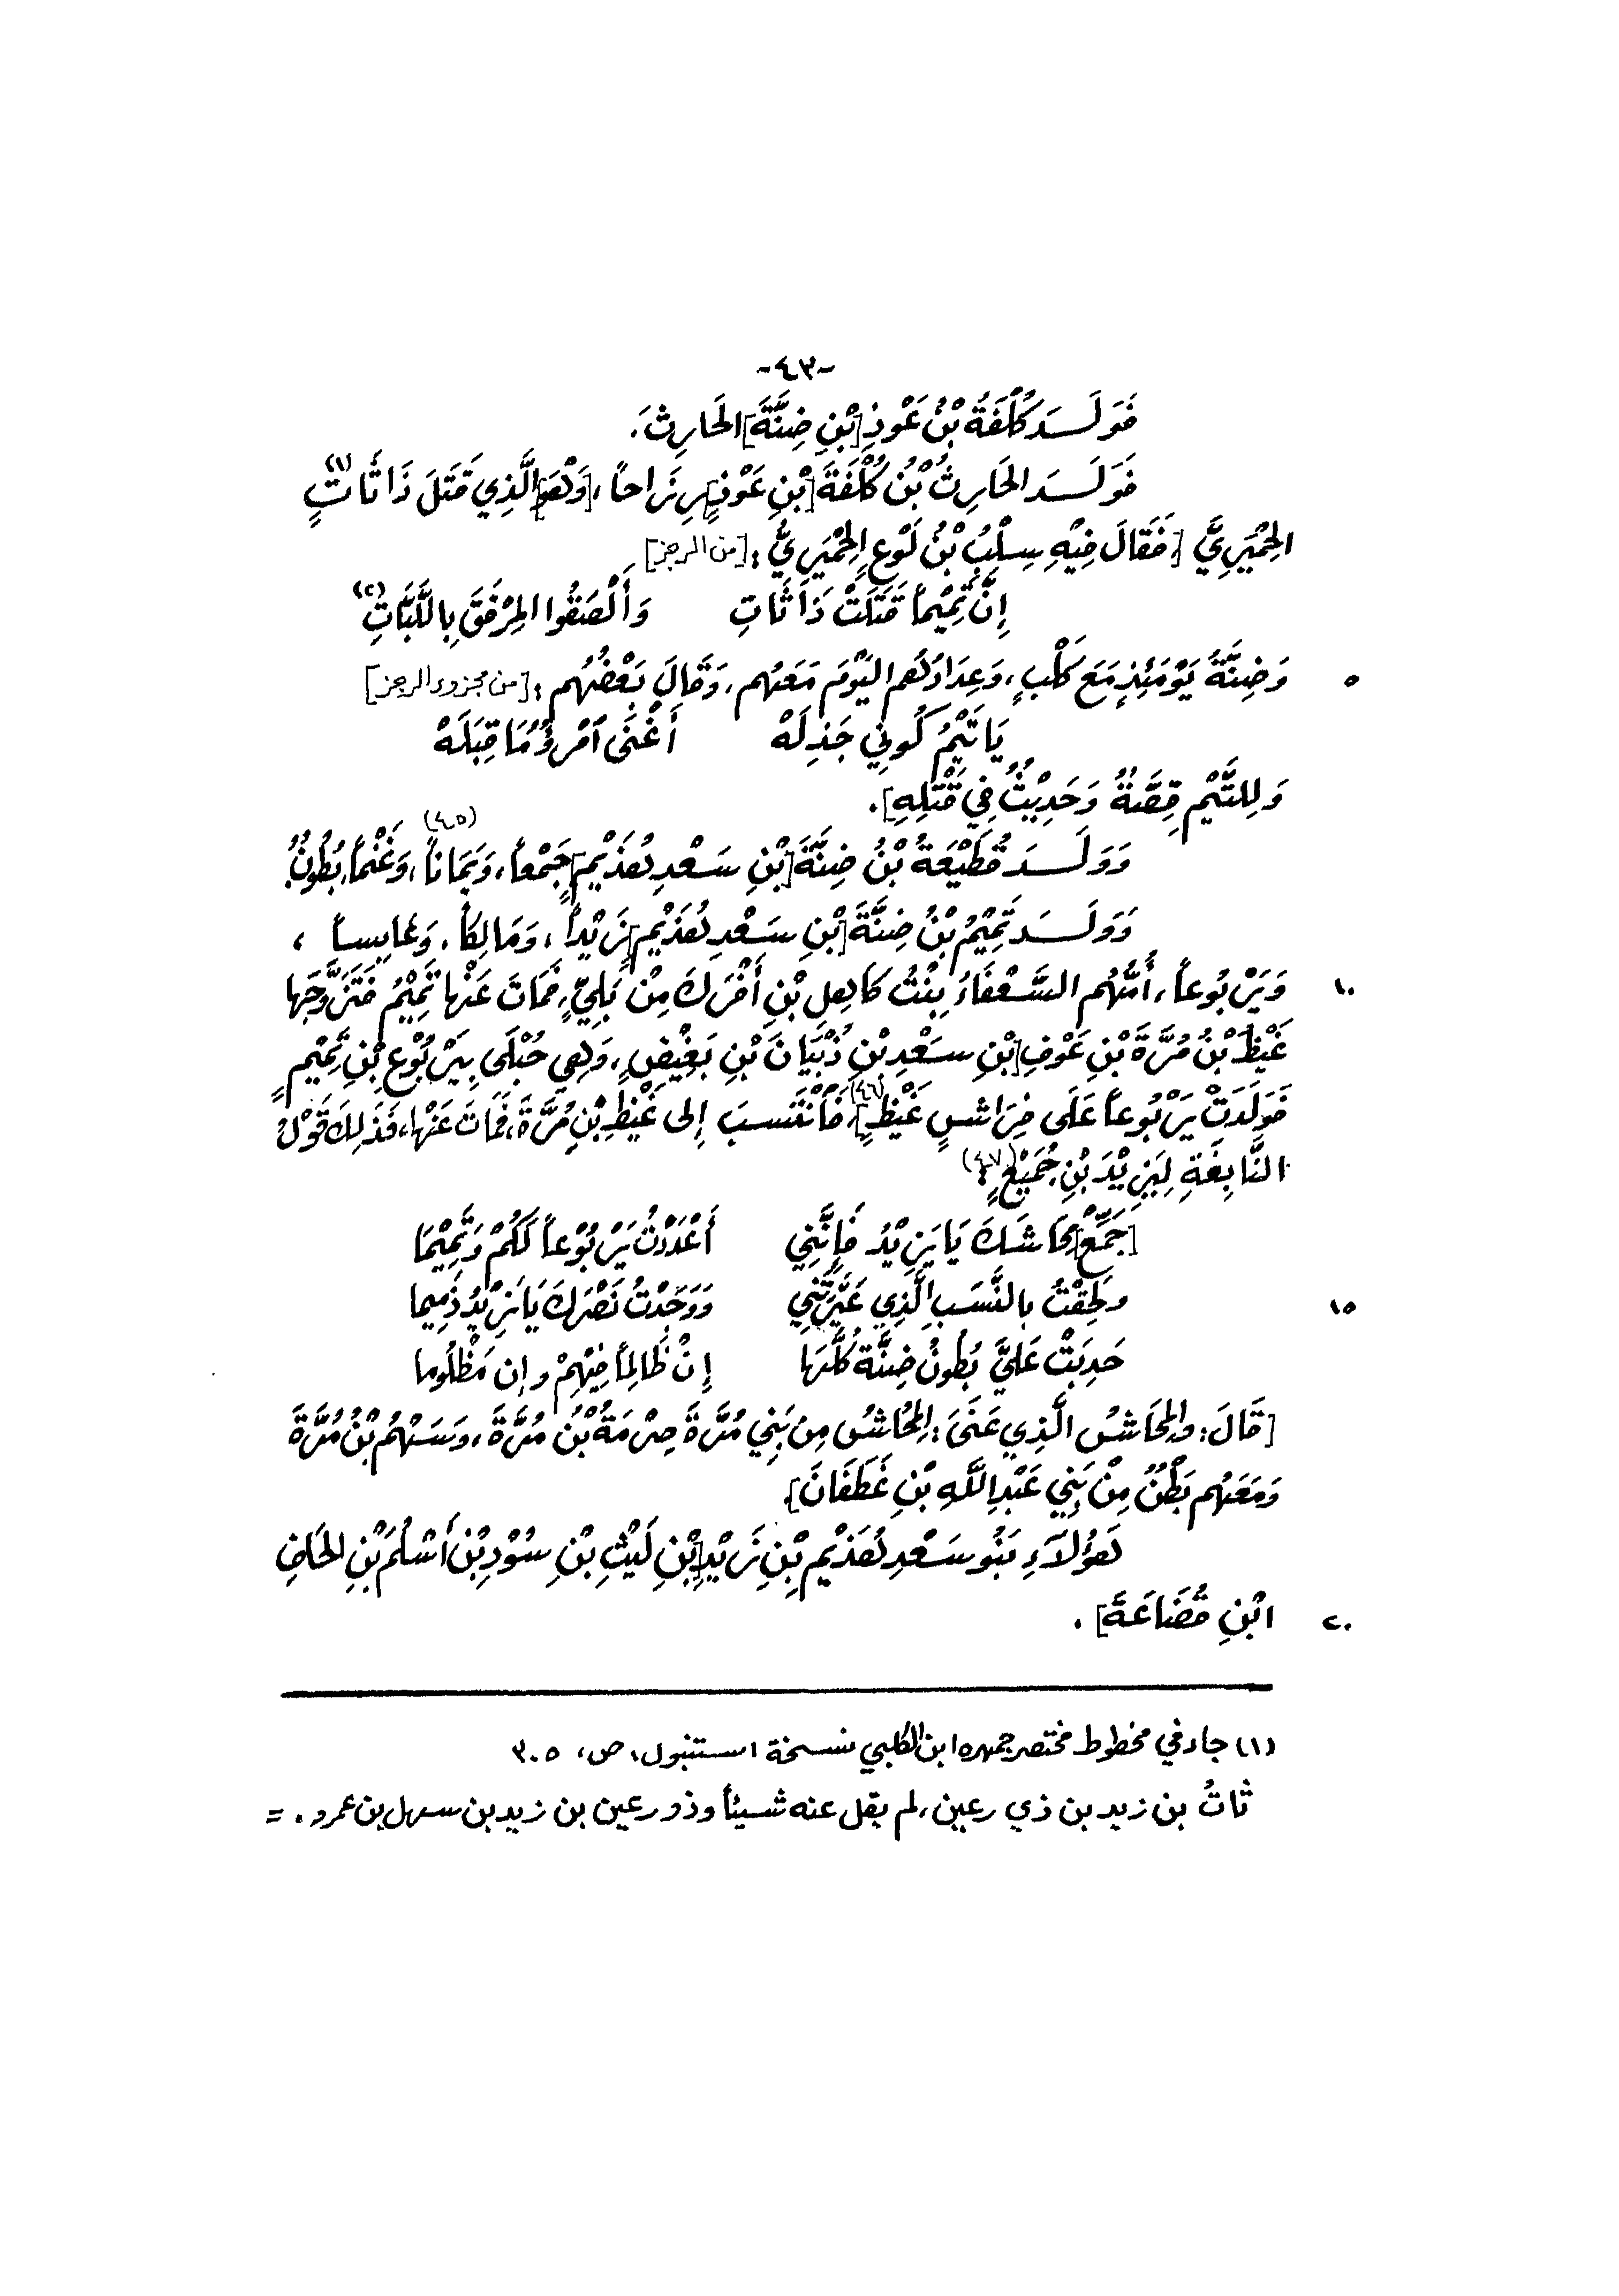 -٤٣-
فَوَلَــدَ كُلْفَةُ بْنُ عَوْذِ[بْنِ ضِنَّةَ]الحَارِثَ.
فَوَلَــدَ الحَارِثُ بْنُ كُلْفَةَ[بْنِ عَوْذٍ]رِزَاحاً،[وَهُوَ]الَّذِي قَتَلَ ذَا ثَاتٍ(١)
الحِمْيَرِيَّ [،فَقَالَ فِيْهِ سِلْبُ بْنُ لَوْعٍ الحِمْيَرِيُّ :[من الرجز]
إِنَّ تَمِيْماً قَتَلَتْ ذَا ثَاتِ وَأَلْصَقُوا المِرْفَقَ بِاللَّبَّاتِ(٢)
٥ وَضِنَّةُ يَوْمَئِذٍ مَعَ كَلْبٍ، وَعِدَادُهُم اليَوْمَ مَعَهُم، وَقَالَ بَعْضُهُم :[من مجزوء الرجز]
يَا تَيْمُ كُونِي جَذِلَهْ أَغْنَى ٱمْرُؤٌ مَا قِبَلَهْ
وَلِلتَّيْمِ قِصَّةٌ وَحَدِيْثٌ فِي قَتْلِهِ].
وَوَلَــدَ قُطَيْعَةُ بْنُ ضِنَّةَ[بْنِ سَعْدِ هُذَيْمٍ]جَمْعاً، وَيَمَاناً(٤٥)، وَغَنْماً، بُطُونٌ.
وَوَلَــدَ تَمِيْمُ بْنُ ضِنَّةَ[بْنِ سَعْدِ هُذَيْمٍ]زَيْداً، وَمَالِكاً، وَعَابِساً ،
١٠ وَيَرْبُوعاً، أُمُّهُم السَّعْفَاءُ بِنْتُ كَاهِلِ بْنِ أَفْرَكَ مِنْ بَلِيٍّ، فَمَاتَ عَنْها تَمِيْمُ فَتَزَوَّجَها
غَيْظُ بْنُ مُرَّةَ بْنِ عَوْفِ[بْنِ سَعْدِ بْنِ ذُبْيَانَ بْنِ بَغِيْضٍ، وَهِي حُبْلَى بِيَرْبُوْعِ بْنِ تَمِيْمٍ
فَوَلَدَتْ يَرْبُوعاً عَلَى فِرَاشِ غَيْظٍ(٤٦)]، فَٱنْتَسَبَ إلى غَيْظِ بْنِ مُرَّةَ، فَمَاتَ عَنْها، فَذَلِكَ قَوْلُ
النَّابِغَةِ لِيَزِيْدَ بْنِ جُمَيْعٍ(٤٧):
[جَمِّعْ]مِحَاشَكَ يَا يَزِيْدُ فَإِنَّنِي أَعْدَدْتُ يَرْبُوْعاً لَكُمْ وَتَمِيْمَا
١٥ ولَحِقْتُ بالنَّسَبِ الَّذِي عَيَّرْتَنِي وَوَجَدْتُ نَصْرَكَ يَا يَزِيْدُ ذَمِيما
حَدِبَتْ عَلَيَّ بُطُونُ ضِنَّةَ كُلُّهَا إِنْ ظَالِماً فِيْهِمْ وإن مَظْلُوما
[قَالَ: والمِحَاشُ الَّذِي عَنَى : المِحَاشُ مِنْ بَنِي مُرَّةَ صِرْمَةُ بْنُ مُرَّةَ، وَسَهْمُ بْنُ مُرَّةَ
وَمَعَهُم بَطْنٌ مِنْ بَنِي عَبْدِ اللَّهِ بْنِ غَطَفَانَ].
هَؤُلاَءِ بَنُو سَعْدِ هُذَيْمِ بْنِ زَيْدِ[بْنِ لَيْثِ بْنِ سُوْدِ بْنِ أَسْلُمَ بْنِ الحَافِ
٢٠ ابْنِ قُضَاعَةَ] .
(١) جاء في مخطوط مختصر جمهرة ابن الكلبي نسخة استنبول، ص، ٣٠٥
ثاتُ بن زيد بن ذي رعين، لم يقل عنه شيئاً وذو رعين بن زيد بن سهل بن عمرو. =